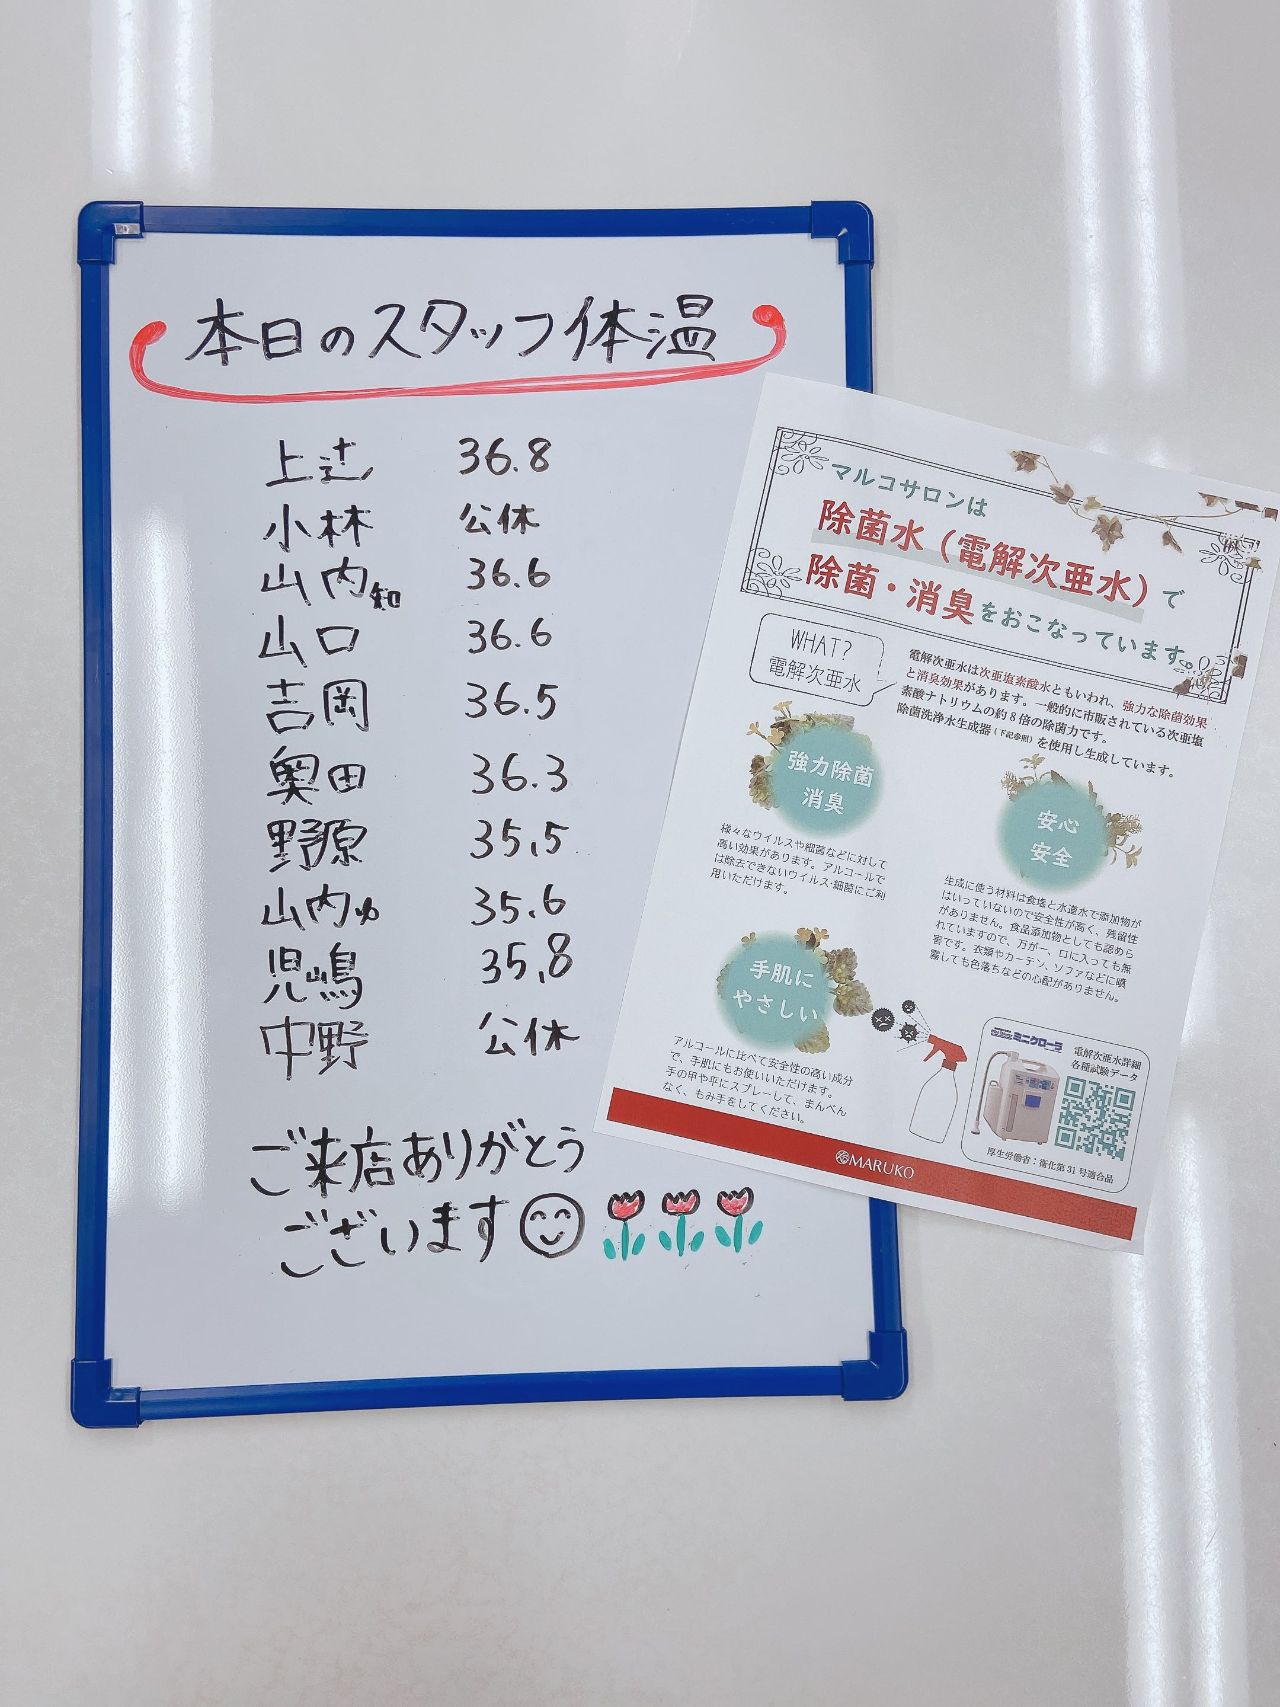 本日のスタッフ体温
上辻 36.8
小林 公休
山内知 36.6
山口 36.6
吉岡 36.5
奥田 36.3
野原 35.5
山内ゆ 35.6
児嶋 35.8
中野 公休
ご来店ありがとう
ございます
マルコサロンは
除菌水（電解次亜水）で
除菌・消臭をおこなっています。
WHAT?
電解次亜水
電解次亜水は次亜塩素酸水ともいわれ、強力な除菌効果
と消臭効果があります。一般的に市販されている次亜塩
素酸ナトリウムの約8倍の除菌力です。
除菌洗浄水生成器（下記参照）を使用し生成しています。
強力除菌
消臭
様々なウイルスや細菌などに対して
高い効果があります。アルコールで
は除去できないウイルス・細菌にご利
用いただけます。
安心
安全
生成に使う材料は食塩と水道水で添加物が
はいっていないので安全性が高く、残留性
がありません。食品添加物としても認めら
れていますので、万が一、口に入っても無
害です。衣類やカーテン、ソファなどに噴
霧しても色落ちなどの心配がありません。
手肌に
やさしい
アルコールに比べて安全性の高い成分
で、手肌にもお使いいただけます。
手の甲や平にスプレーして、まんべん
なく、もみ手をしてください。
ミニクローラ
電解次亜水詳細
各種試験データ
厚生労働省：衛化第31号適合品
MARUKO